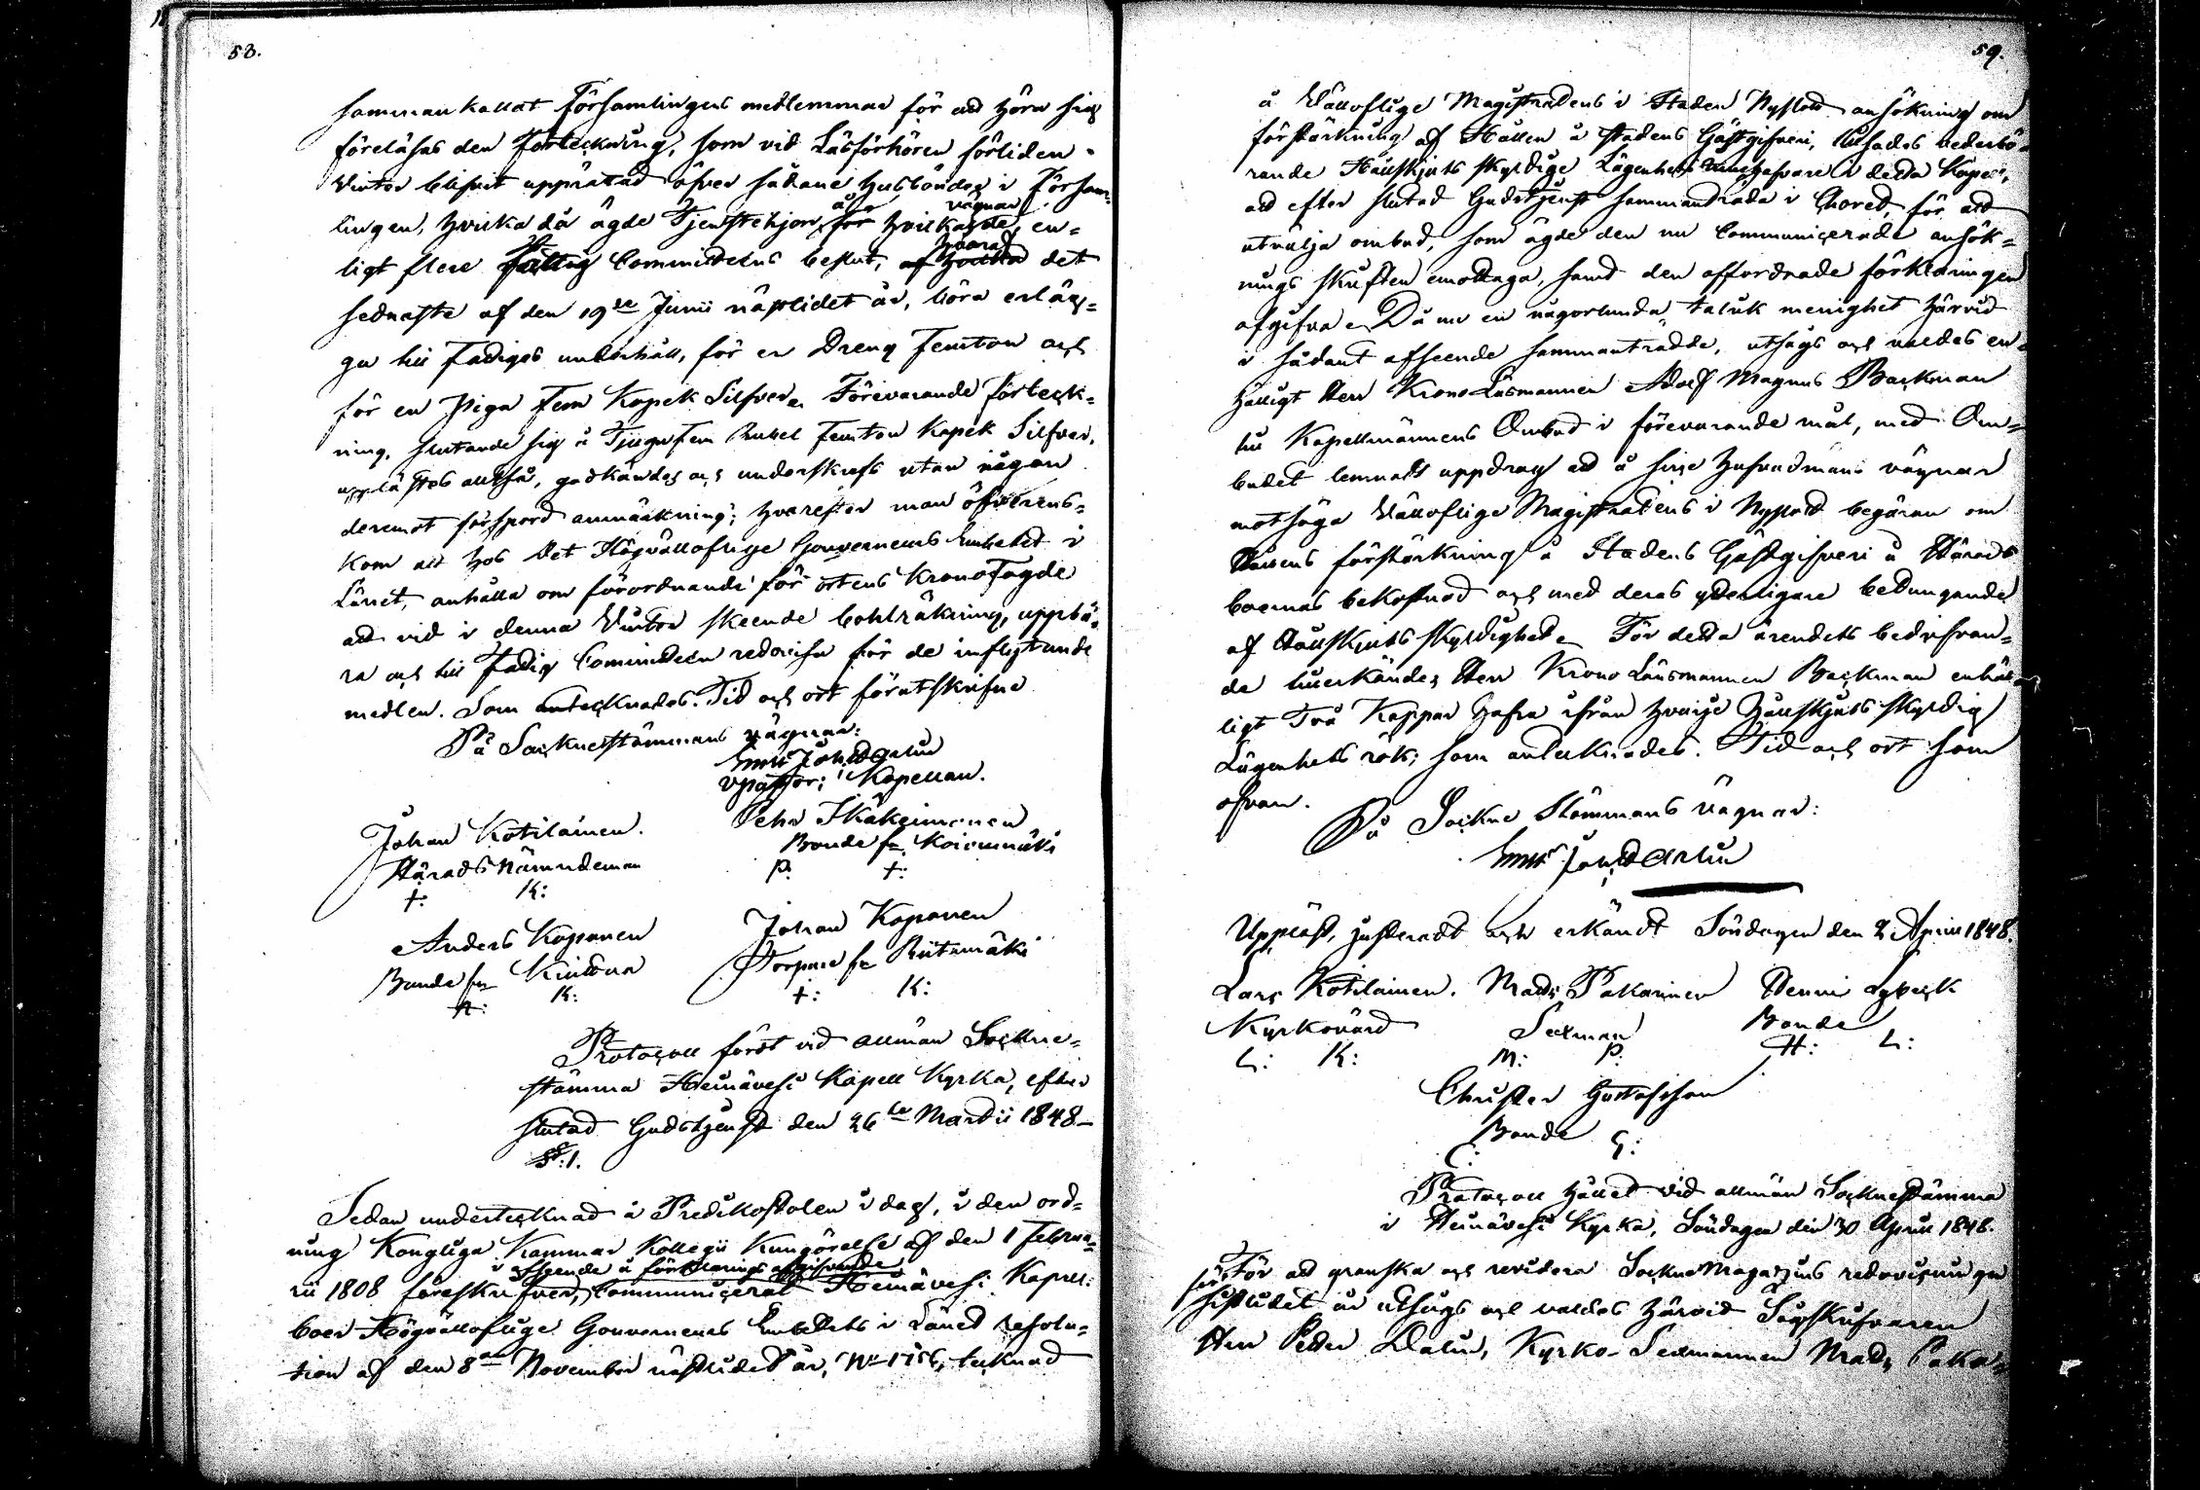 58.
sammankallat Församlingens medlemmar för att höra sig
föreläsas den Förteckning, som vid Läsförhören förliden
Vinter blifvit upprättad öfver sådane husbönder i Försam-
lingen, hvilka då ägde Tjenstehjon, å hvilkas vägnar de, en-
ligt flere Fattig Committéens beslut, hvaraf det
sednaste af den 19de Junii nästlidet år, böra erläg-
ga till Fattigas underhåll, för en Dreng Femton och
för en Piga Fem Kopek Silfver. Förevarande förteck-
ning, slutande sig å Tjugufem Rubel Femton Kopek Silfver,
upplästes alltså, godkändes och underskrefs utan någon
deremot förspord anmärkning; hvarefter man öfverens-
kom att hos Det Högvällofliga Gouverneurs Embetet i
Länet, anhålla om förordnande för ortens Kronofogde
att vid i denna Vinter skeende bohlräkning, uppbä-
ra och till Fattig Committéen redovisa för de inflytande
medlen. Som antecknades. Tid och ort förutskrifne
På Sockenestämmans vägnar:
Vpastor; Kapellan.
Johan Kotilainen. Pehr
Häradsnämndeman Bonde fr.
†: K: P: †:
Anders Koponen Johan Koponen
Bonde fr Torpare fr Riitamäki
A: K: †: K:
Protocoll fördt vid allmän Sockne-
stämma Heinävesi Kapell Kyrka, efter
slutad Gudstjenst den 26te Martii 1848
§:1.
Sedan undertecknad å Predikostolen i dag, i den ord-
ning Kongliga Kammar Kollegii Kungörelse af den 1 Februa-
i afseende å förklarings afgifvande
rii 1808 föreskrifver, Communicerat Heinävesi Kapell-
boer Högvällofliga Gouverneurs Embetets i Länet resolu-
tion af den 8de November nästlidet år, No tecknad
59.
å Vällofliga Magistratens i Staden Nyslott ansökning om
förstärkning af Hållen å stadens Gästgifveri, lystes vederbö-
rande Hållskjuts skyldige Lägenhets innehafvare i detta Kapell,
att efter slutad Gudstjenst sammanträda i Choret, för att
utvälja ombud, som ägde den nu Communicerade ansök-
nings skriften emottaga, samt den affordrade förklaringen
afgifva. Då nu en någorlunda talrik menighet härvid
i sådant afseende sammanträdde, utsågs och valdes en-
hälligt Herr KronoLänsmannen Adolf Magnus Backman
till Kapellmännens Ombud i förevarande mål, med Om-
budet lemnadt uppdrag att å sine hufvudmäns vägnar
motsäga Vällofliga Magistratens i Nyslott begäran om
Hållens förstärkning å Stadens Gästgifveri å Härads
boernas bekostnad och med deras ytterligare betungande
af Hållskjuts skyldighet. För detta ärendets bedrifvan-
de tillerkändes Herr Krono Länsmannen Backman enhäl-
ligt Två Kappar Hafra ifrån hvarje Hållskjuts skyldig
Lägenhets rök; som antecknades. Tid och ort som
ofvan.
På Sockne Stämmans vägnar:
Uppläst, justeradt och erkändt Söndagen den 2 April 1848.
Lars Kotilainen. Mats Pakarinen Henric Lybeck
Kyrkovärd Sexman Bonde
L: K: M: P: H: L:
Christer Gustafsson
Bonde
C: G:
Protocoll hållet vid allmän Socknestämma
i Heinävesi Kyrka, Söndagen den 30 April 1848.
För att granska och revidera Sockne Magazins redovisningen
för sistlidet år utsågs och valdes härvid Tingskrifvaren
Herr Petter Dalin, Kyrko-Sexmannen Mats Paka-